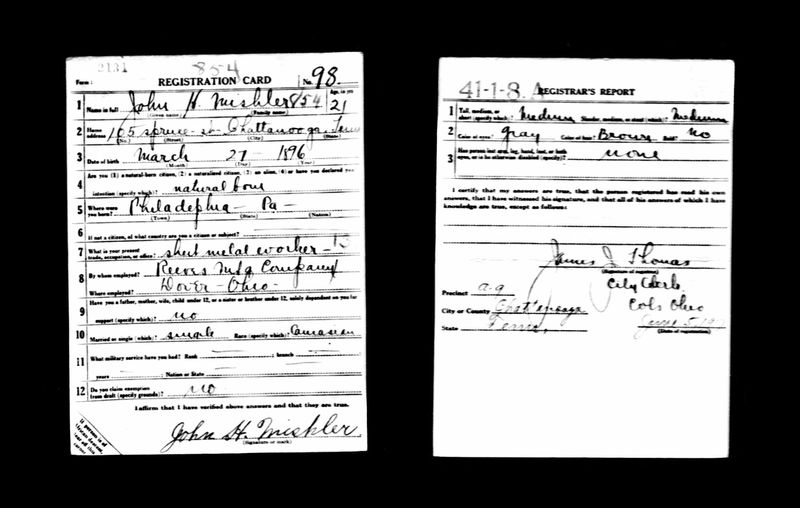 2131 854
Form 1 REGISTRATION CARD No. 98.
1 Name in full John H. Mishler 854 Age, in yrs 21
(Given name) (Family name)
2 Home address 105 Spruce st Chattanooga, Tenn
(No.) (Street) (City) (State)
3 Date of birth March 27 1896
(Month) (Day) (Year)
4 Are you (1) a natural-born citizen, (2) a naturalized citizen, (3) an alien, (4) or have you declared your
intention (specify which)? natural born
5 Where were you born? Philadephia - Pa -
(Town) (State) (Nation)
6 If not a citizen, of what country are you a citizen or subject?
7 What is your present trade, occupation, or office? sheet metal worker -
8 By whom employed? Reeves Mfg Company
Where employed? Dover - Ohio -
9 Have you a father, mother, wife, child under 12, or a sister or brother under 12, solely dependent on you for
support (specify which)? no
10 Married or single (which)? single Race (specify which)? Caucasian
11 What military service have you had? Rank ; branch
years ; Nation or State
12 Do you claim exemption from draft (specify grounds)? no
I affirm that I have verified above answers and that they are true.
John H. Mishler
(Signature or mark)
If person is of African descent, tear off this corner
41-1-8. A REGISTRAR'S REPORT
1 Tall, medium, or short (specify which)? Medium Slender, medium, or stout (which)? Medium
2 Color of eyes? gray Color of hair? Brown Bald? no
3 Has person lost arm, leg, hand, foot, or both eyes, or is he otherwise disabled (specify)? none
I certify that my answers are true, that the person registered has read his own
answers, that I have witnessed his signature, and that all of his answers of which I have
knowledge are true, except as follows:
James J. Thomas
(Signature of registrar)
Precinct City Clerk
City or County Chattanooga Cols Ohio
State Tenn. June 5
(Date of registration)